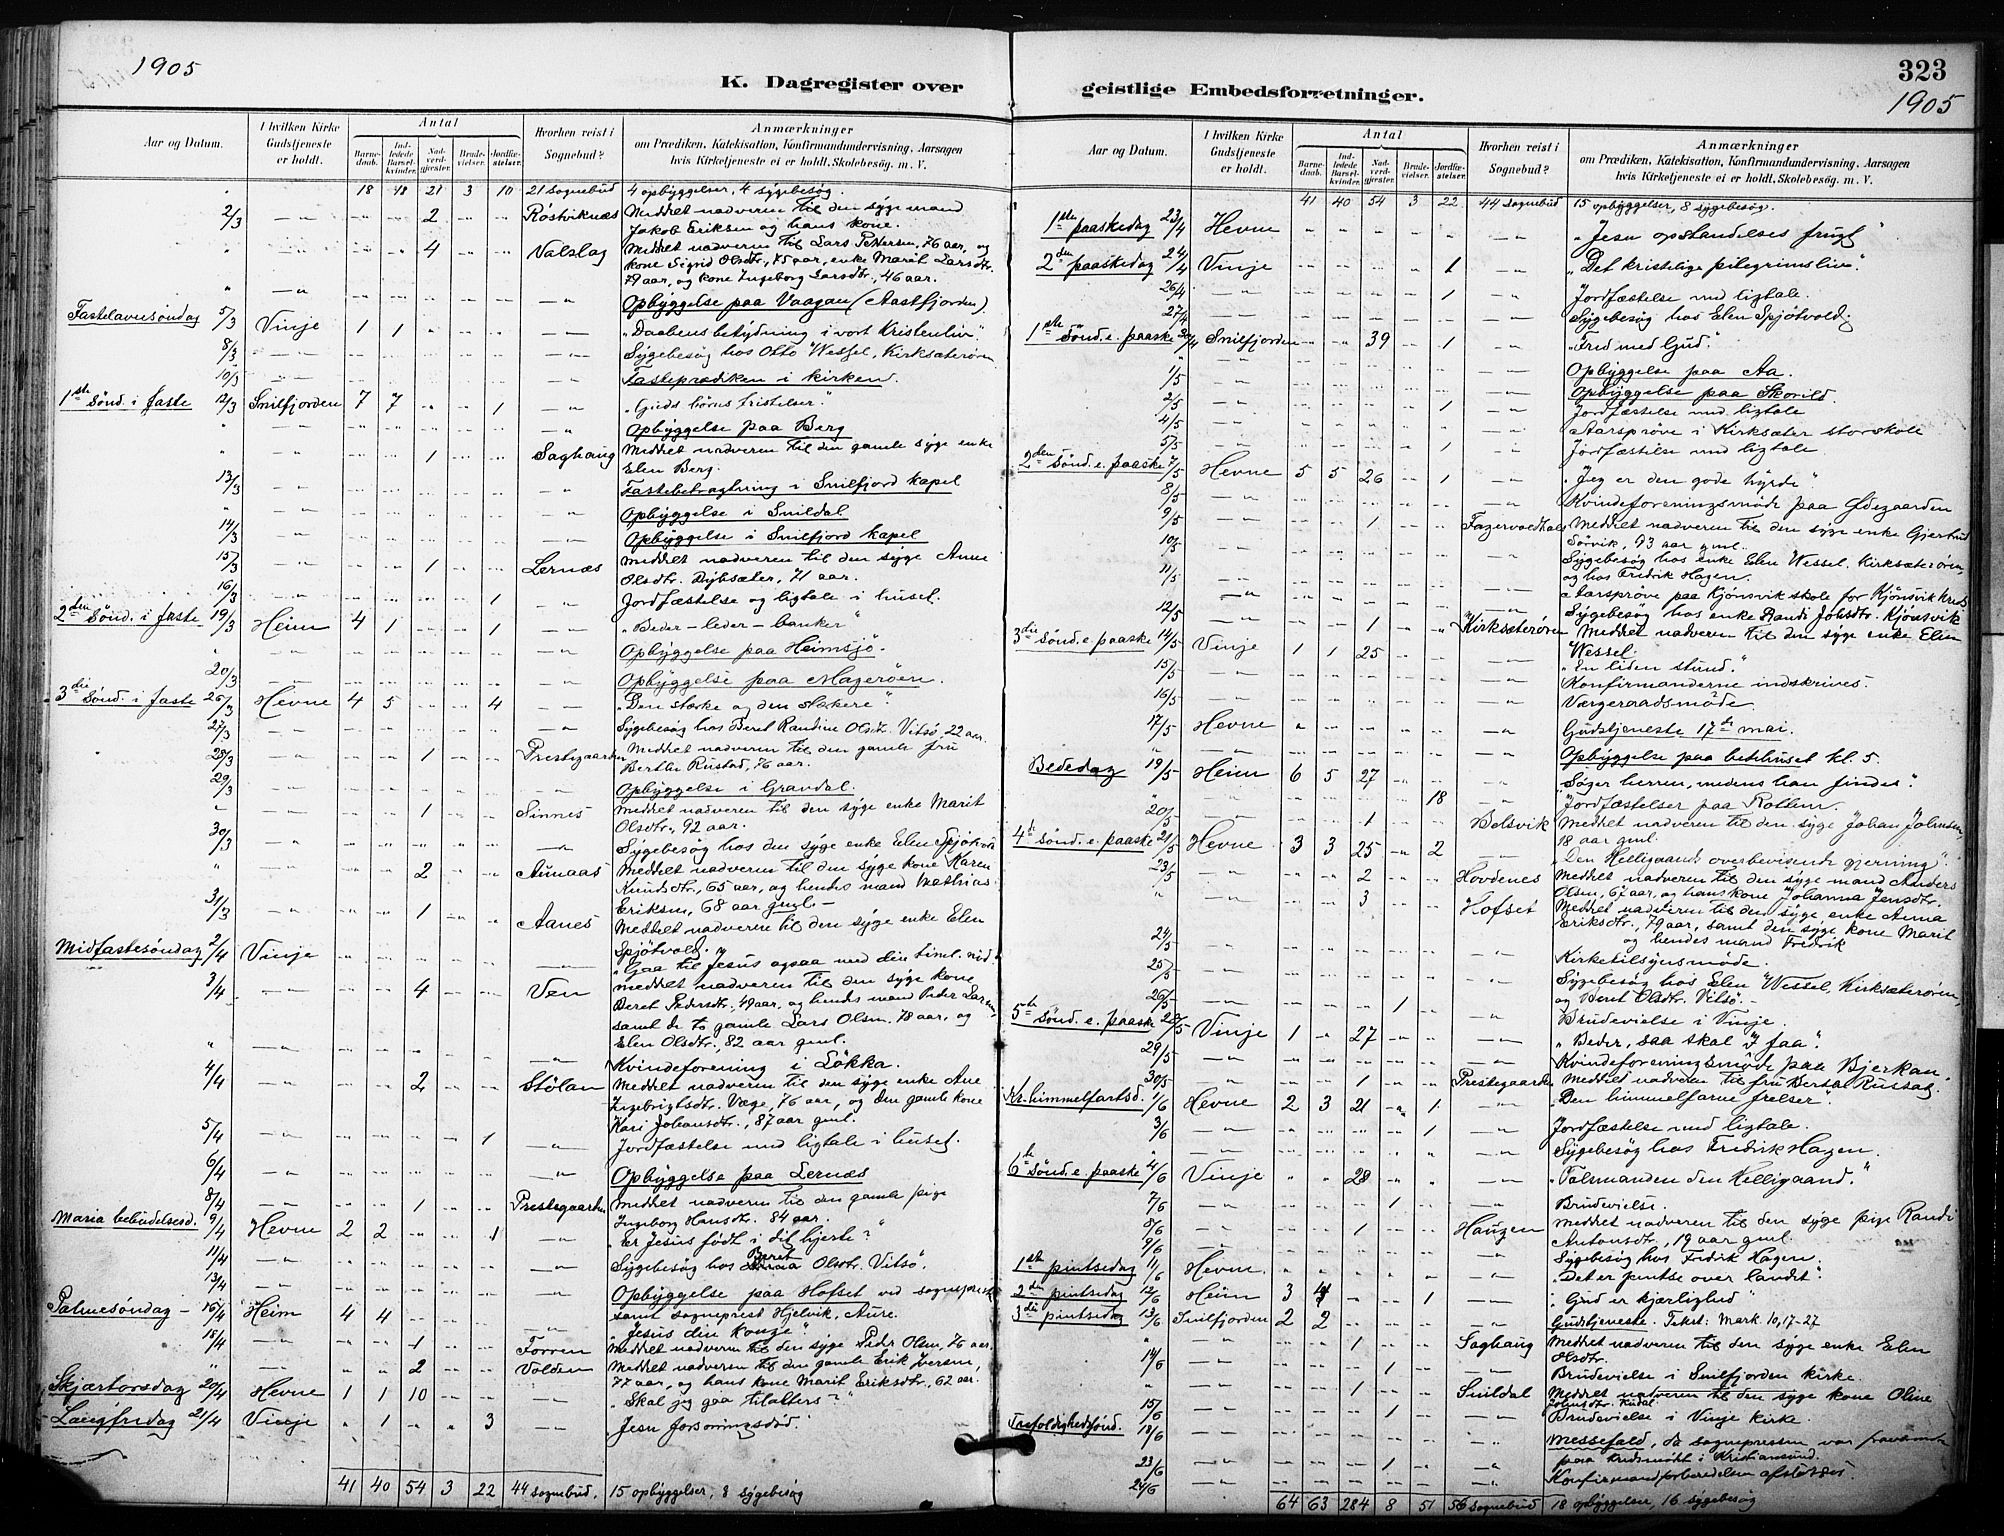 1905
K. Dagregister over
Aar og Datum.
I hvilken Kirke Gudstjeneste er holdt.
Antal
Barnedaab.
Indledede Barselkvinder.
Nadverdgjester.
Brudevielser.
Jordfæstelser.
Hvorhen reist i Sognebud?
Anmærkninger
om Prædiken, Katekisation, Konfirmandundervisning, Aarsagen
hvis Kirketjeneste ei er holdt, Skolebesøg. m. V.
18 18 21 3 10 21 sognebud 4 opbyggelser, 4 sygebesøg.
2/3 2 Meddelt nadveren til den syge mand
Jakob Eriksen og hans kone.
4 Valslag Meddelt nadveren til Lars Pettersen, 76 aar, og
kone Sigrid Olsdtr., 75 aar, enke Marit Larsdtr.
79 aar, og kone Ingeborg Larsdtr., 46 aar.
Opbyggelse paa Vaagan (Aastfjorden).
Fastelavnsøndag 5/3 Vinje 1 1 "Daabens betydning i vort kristenliv".
8/3 Sygebesøg hos Otto Wessel, Kirksæterøren
10/3 Fasteprædiken i kirken.
1ste Sønd. i faste 12/3 Snilfjorden 7 7 1 "Guds børns fristelser."
Opbyggelse paa Berg
1 Saghaug Meddelt nadveren til den gamle syge enke
Elen Berg.
13/3 Fastebetragtning i Snilfjord kapel
Opbyggelse i Snildal
14/3 Opbyggelse i Snilfjord kapel
15/3 1 Lernæs Meddelt nadveren til den syge Anne
Olsdtr. 71 aar.
16/3 1 Jordfæstelse og ligtale i huset.
2den Sønd. i faste 19/3 Heim 4 1 1 "Beder - leder - banker"
Opbyggelse paa Heimsjø.
20/3 Opbyggelse paa Magerøen.
3die Sønd. i faste 26/3 Hevne 4 5 4 "Den stærke og den stærkere".
27/3 Sygebesøg hos Beret Randine Olsdtr. Vitsø, 22 aar.
28/3 1 Prestegaarden Meddelt nadveren til den gamle fru
Berthe Rustad, 76 aar.
29/3 Opbyggelse i Gravdal.
1 Sinnes Meddelt nadveren til den syge enke Marit
Olsdtr., 92 aar.
30/3 Sygebesøg hos den syge enke Elen Spjøtvold
2 Aunaas Meddelt nadveren til den syge kone Karen
Knudsdtr., 65 aar, og hendes mand Mathias
Eriksen, 68 aar gml.
31/3 1 Aanes Meddelt nadveren til den syge enke Elen
Spjøtvold.
Midfastesøndag 2/4 Vinje "Gaa til Jesus ogsaa med din timl. nød"
3/4 4 Ven Meddelt nadveren til den syge kone
Beret Pedersdtr., 49 aar, og hendes mand Peder Larsen,
samt de to gamle Lars Olsen, 78 aar, og
Elen Olsdtr., 82 aar gml.
Kvindeforening i Løkka.
4/4 2 Stølan Meddelt nadveren til den syge enke Ane
Ingebrigtsdtr. Væge, 76 aar, og den gamle kone
Kari Johansdtr., 87 aar gml.
5/4 1 Jordfæstelse med ligtale i huset.
6/4 Opbyggelse paa Lernæs
8/4 1 Prestegaarden Meddelt nadveren til den gamle pige
Ingeborg Hansdtr. 84 aar.
Maria bebudelsesd. 9/4 Hevne 2 2 1 "Er Jesus født i dit hjerte?"
11/4 Sygebesøg hos Beret Olsdtr. Vitsø.
13/4 Opbyggelse paa Hofset ved sogneprest
samt sogneprest Hjelvik, Aure.
Palmesøndag 16/4 Heim 4 4 "Jesus din konge".
15/4 1 Forren Meddelt nadveren til den syge Peder Olsen, 76 aar.
2 Volden Meddelt nadveren til den gamle Erik Iversen,
77 aar, og hans kone Marit Eriksdtr., 62 aar.
Skjærtorsdag 20/4 Hevne 1 1 10 "Skal jeg gaa tilalters?"
Langfredag 21/4 Vinje 1 3 "Jesu forsoningsdød."
41 40 54 3 22 44 sognebud. 15 opbyggelser, 8 sygebesøg
323
1905
geistlige Embedsforretninger.
Aar og Datum.
I hvilken Kirke Gudstjeneste er holdt.
Antal
Barnedaab.
Indledede Barselkvinder.
Nadverdgjester.
Brudevielser.
Jordfæstelser.
Hvorhen reist i Sognebud?
Anmærkninger
om Prædiken, Katekisation, Konfirmandundervisning, Aarsagen
hvis Kirketjeneste ei er holdt, Skolebesøg. m. V.
41 40 54 3 22 44 sognebud 15 opbyggelser, 8 sygebesøg.
1ste paaskedag 23/4 Hevne "Jesu opstandelses frugt"
2den paaskedag 24/4 Vinje 1 "Det kristelige pilegrimsliv".
26/4 1 Jordfæstelse med ligtale.
27/4 Sygebesøg hos Elen Spjøtvold
1ste Sønd. e. paaske 30/4 Snilfjorden 39 1 "Fred med Gud".
Opbyggelse paa Aa.
1/5 Opbyggelse paa Skorild.
2/5 1 Jordfæstelse med ligtale
4/5 Aarsprøve i Kirksæter storskole
5/5 1 Jordfæstelse med ligtale.
2den Sønd. e. paaske 7/5 Hevne 5 5 26 1 "Jeg er den gode hyrde"
8/5 Kvindeforeningsmøde paa Ødegaarden
9/5 1 Meddelt nadveren til den syge enke Gjertrud
Sørvik, 93 aar gml.
10/5 Sygebesøg hos enke Elen Wessel, Kirksæterøren,
og hos Fredrik Hagen.
11/5 Aarsprøve paa Kjønsvik skole for Kjønsvik kreds
12/5 Sygebesøg hos enke Randi Johsdtr. Kjønsvik
1 Kirksæterøren Meddelt nadveren til den syge enke Elen
Wessel.
3die Sønd. e. paaske 14/5 Vinje 1 1 25 "En liden stund."
15/5 Konfirmanderne indskrives.
16/5 Værgeraadsmøde.
17/5 Hevne Gudstjeneste 17de mai.
Opbyggelse paa bedehuset kl. 5.
Bededag 19/5 Heim 6 5 27 "Søger herren, medens han findes".
18 Jordfæstelser paa Rottem.
20/5 1 Belsvik Meddelt nadveren til den syge Johan Johnsen
18 aar gml.
4de Sønd. e. paaske 21/5 Hevne 3 3 25 2 "Den Helligaands overbevisende gjerning".
23/5 2 Hovdenes Meddelt nadveren til den syge mand Anders
Olsen, 67 aar, og hans kone Johanna Jensdtr.
3 Hofset Meddelt nadveren til den syge enke Anna
Eriksdtr., 79 aar, samt den syge kone Marit
og hendes mand Fredrik
24/5 Kirketilsynsmøde.
25/5 Sygebesøg hos Elen Wessel, Kirksæterøren,
og Beret Olsdtr. Vitsø.
26/5 1 Brudevielse i Vinje.
5te Sønd. e. paaske 28/5 Vinje 1 27 "Beder, saa skal I faa".
29/5 Kvindeforeningsmøde paa Bjerkan.
30/5 1 Prestegaarden Meddelt nadveren til fru Berta Rustad.
Kr. himmelfartsd. 1/6 Hevne 2 3 21 1 "Den himmelfarne frelser".
3/6 1 Jordfæstelse med ligtale.
Sygebesøg hos Fredrik Hagen.
6te Sønd. e. paaske 4/6 Vinje 28 "Talsmanden den Helligaand."
7/6 1 Brudevielse.
8/6 1 Haugen Meddelt nadveren til den syge pige Randi
Antonsdtr., 19 aar gml.
9/6 Sygebesøg hos Fredrik Hagen.
1ste pintsedag 11/6 Hevne "Det er pintse over landet".
2den pintsedag 12/6 Heim 3 4 1 "Gud er kjærlighed"
3die pintsedag 13/6 Snilfjorden 2 2 Gudstjeneste. Tekst: Mark. 10, 17-27
1 Saghaug Meddelt nadveren til den syge enke Elen
Olsdtr.
14/6 1 Brudevielse i Snilfjorden kirke.
1 Snildal Meddelt nadveren til den syge kone Oline
15/6 1 Brudevielse i Vinje kirke.
Trefoldighedssønd. 18/6 Messefald, da sognepresten var fraværende
paa kredsmøde i Kristiansund.
23/6 1
24/6 Konfirmandforberedelsen afsluttes.
64 63 284 8 51 56 sognebud 18 opbyggelser, 16 sygebesøg